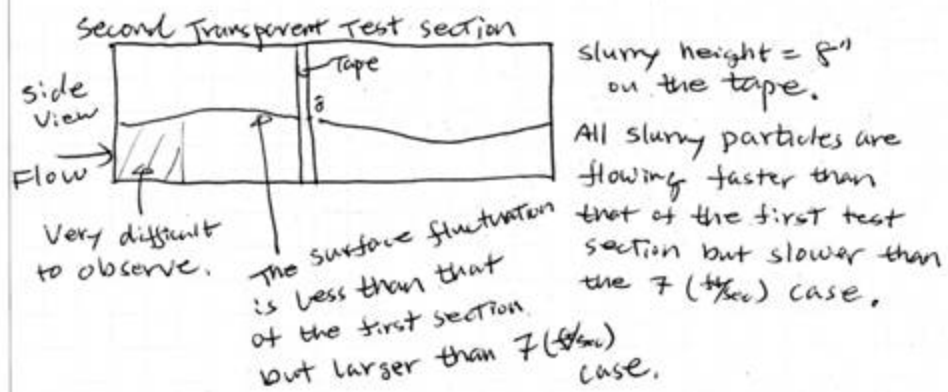 Second Transparent Test section
Tape
side
View
Flow
8
Very difficult
to observe.
The surface fluctuation
is less than that
of the first section.
but larger than 7 (ft/sec)
case.
slurry height = 8"
on the tape.
All slurry particles are
flowing faster than
that of the first test
section but slower than
the 7 (ft/sec) case.